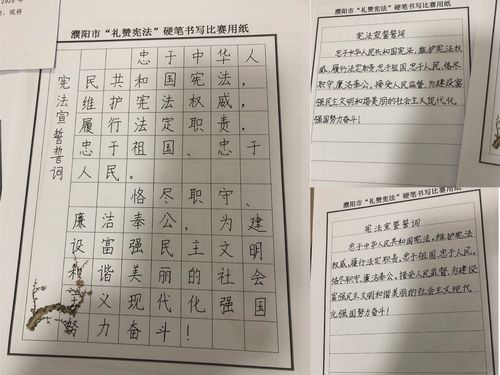 2020 年
，现将
濮阳市“礼赞宪法”硬笔书写比赛用纸
宪法宣誓誓词
忠于中华人
民共和国宪法，
维护宪法权威，
履行法定职责，
忠于祖国、忠于
人民。
恪尽职守、
廉洁奉公，为建
设富强民主文明
和谐美丽的社会
主义现代化强国
努力奋斗！
濮阳市“礼赞宪法”硬笔书写比赛用纸
宪法宣誓誓词
忠于中华人民共和国宪法，维护宪法权
威，履行法定职责，忠于祖国、忠于人民，恪尽
职守、廉洁奉公，接受人民监督，为建设富
强民主文明和谐美丽的社会主义现代化
强国努力奋斗！
濮阳市“礼赞宪法”硬笔书写比赛用纸
宪法宣誓誓词
忠于中华人民共和国宪法，维护宪法
权威，履行法定职责，忠于祖国、忠于人民，
恪尽职守、廉洁奉公，接受人民监督，为建设
富强民主文明和谐美丽的社会主义现代
化强国努力奋斗！